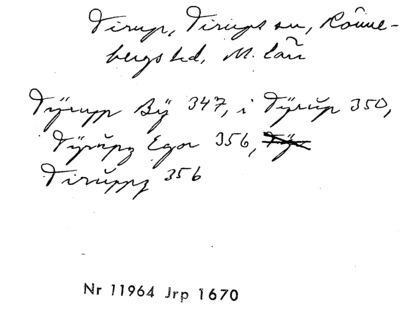 Tirup, Tirups sn, Rönne-
bergs hd, M. län
Tÿrupp Bÿ 347, i Tÿrŭp 350,
Tÿrŭpz Egor 356,
Tirŭppz 356
Nr 11964 Jrp 1670